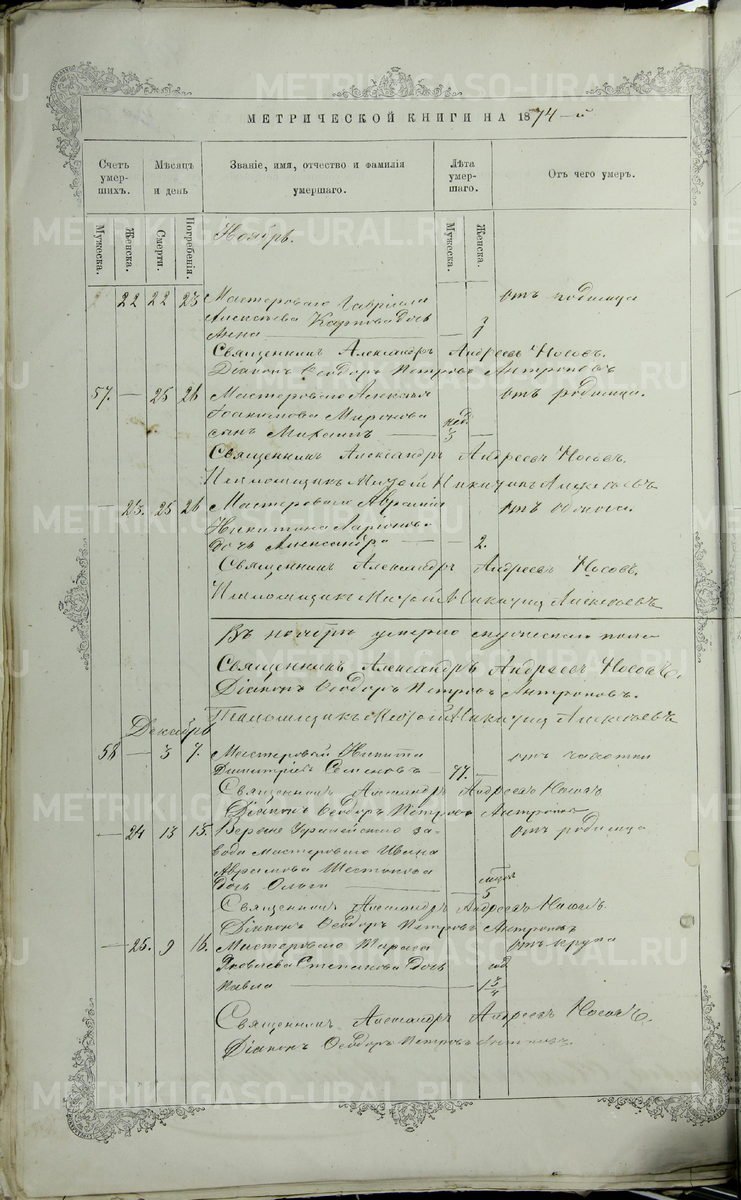 МЕТРИЧЕСКОЙ КНИГИ НА 1874-й
Счетъ умер- шихъ.
Мѣсяцъ и день
Званіе, имя, отчество и фамилія умершаго.
Лѣта умер- шаго.
Отъ чего умеръ.
Мужеска.
Женска.
Смерти.
Погребенія.
Мужеска.
Женска.
Ноябрь.
22 22 23 Мастероваго Гавріила отъ родимца
Алексѣева Карпова дочь
Анна
Священникъ Александръ Андреевъ Носовъ.
Діаконъ Ѳеодоръ Петровъ Антроповъ
57. — 25 26 Мастероваго Алексѣя отъ родимца.
Іоакимова Миронова нед
сынъ Михаилъ — 5 —
Священникъ Александръ Андреевъ Носовъ.
Псаломщикъ Алексѣевъ
— 23. 25 26 Мастероваго Аврамія отъ
Никитина
дочь Александра — — 2.
Священникъ Александръ Андреевъ Носовъ.
Псаломщикъ Алексѣевъ
Въ ноябрѣ умерло пола
Священникъ Александръ Андреевъ Носовъ.
Діаконъ Ѳеодоръ Петровъ Антроповъ.
Псаломщикъ Алексѣевъ
Декабрь
58 — 3 7. Мастеровой Никита отъ чахотки
Димитріевъ Семеновъ — 77. —
Священникъ Александръ Андреевъ Носовъ
Діаконъ Ѳеодоръ Петровъ Антроповъ
— 24 13 15. за- отъ родимца
вода мастероваго Ивана
Аврамова Шестакова
дочь Ольга — 5
Священникъ Александръ Андреевъ Носовъ.
Діаконъ Ѳеодоръ Петровъ Антроповъ
— 25. 9 16. Мастероваго Тараса отъ крупа
Яковлева Степанова дочь год
Павла — 1 3/4
Священникъ Александръ Андреевъ Носовъ.
Діаконъ Ѳеодоръ Петровъ Антроповъ.
METRIKI.GASO-URAL.RU